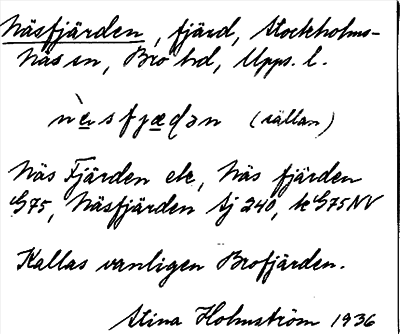 Näsfjärden, fjärd, Stockholms-
Näs sn, Bro hd, Upps. l.
nè̱sfjæḍən (sällan)
Näs Fjärden ek, Näs fjärden
G75, Näsfjärden Sj 240, k G75NV
Kallas vanligen Brofjärden.
Stina Holmström 1936